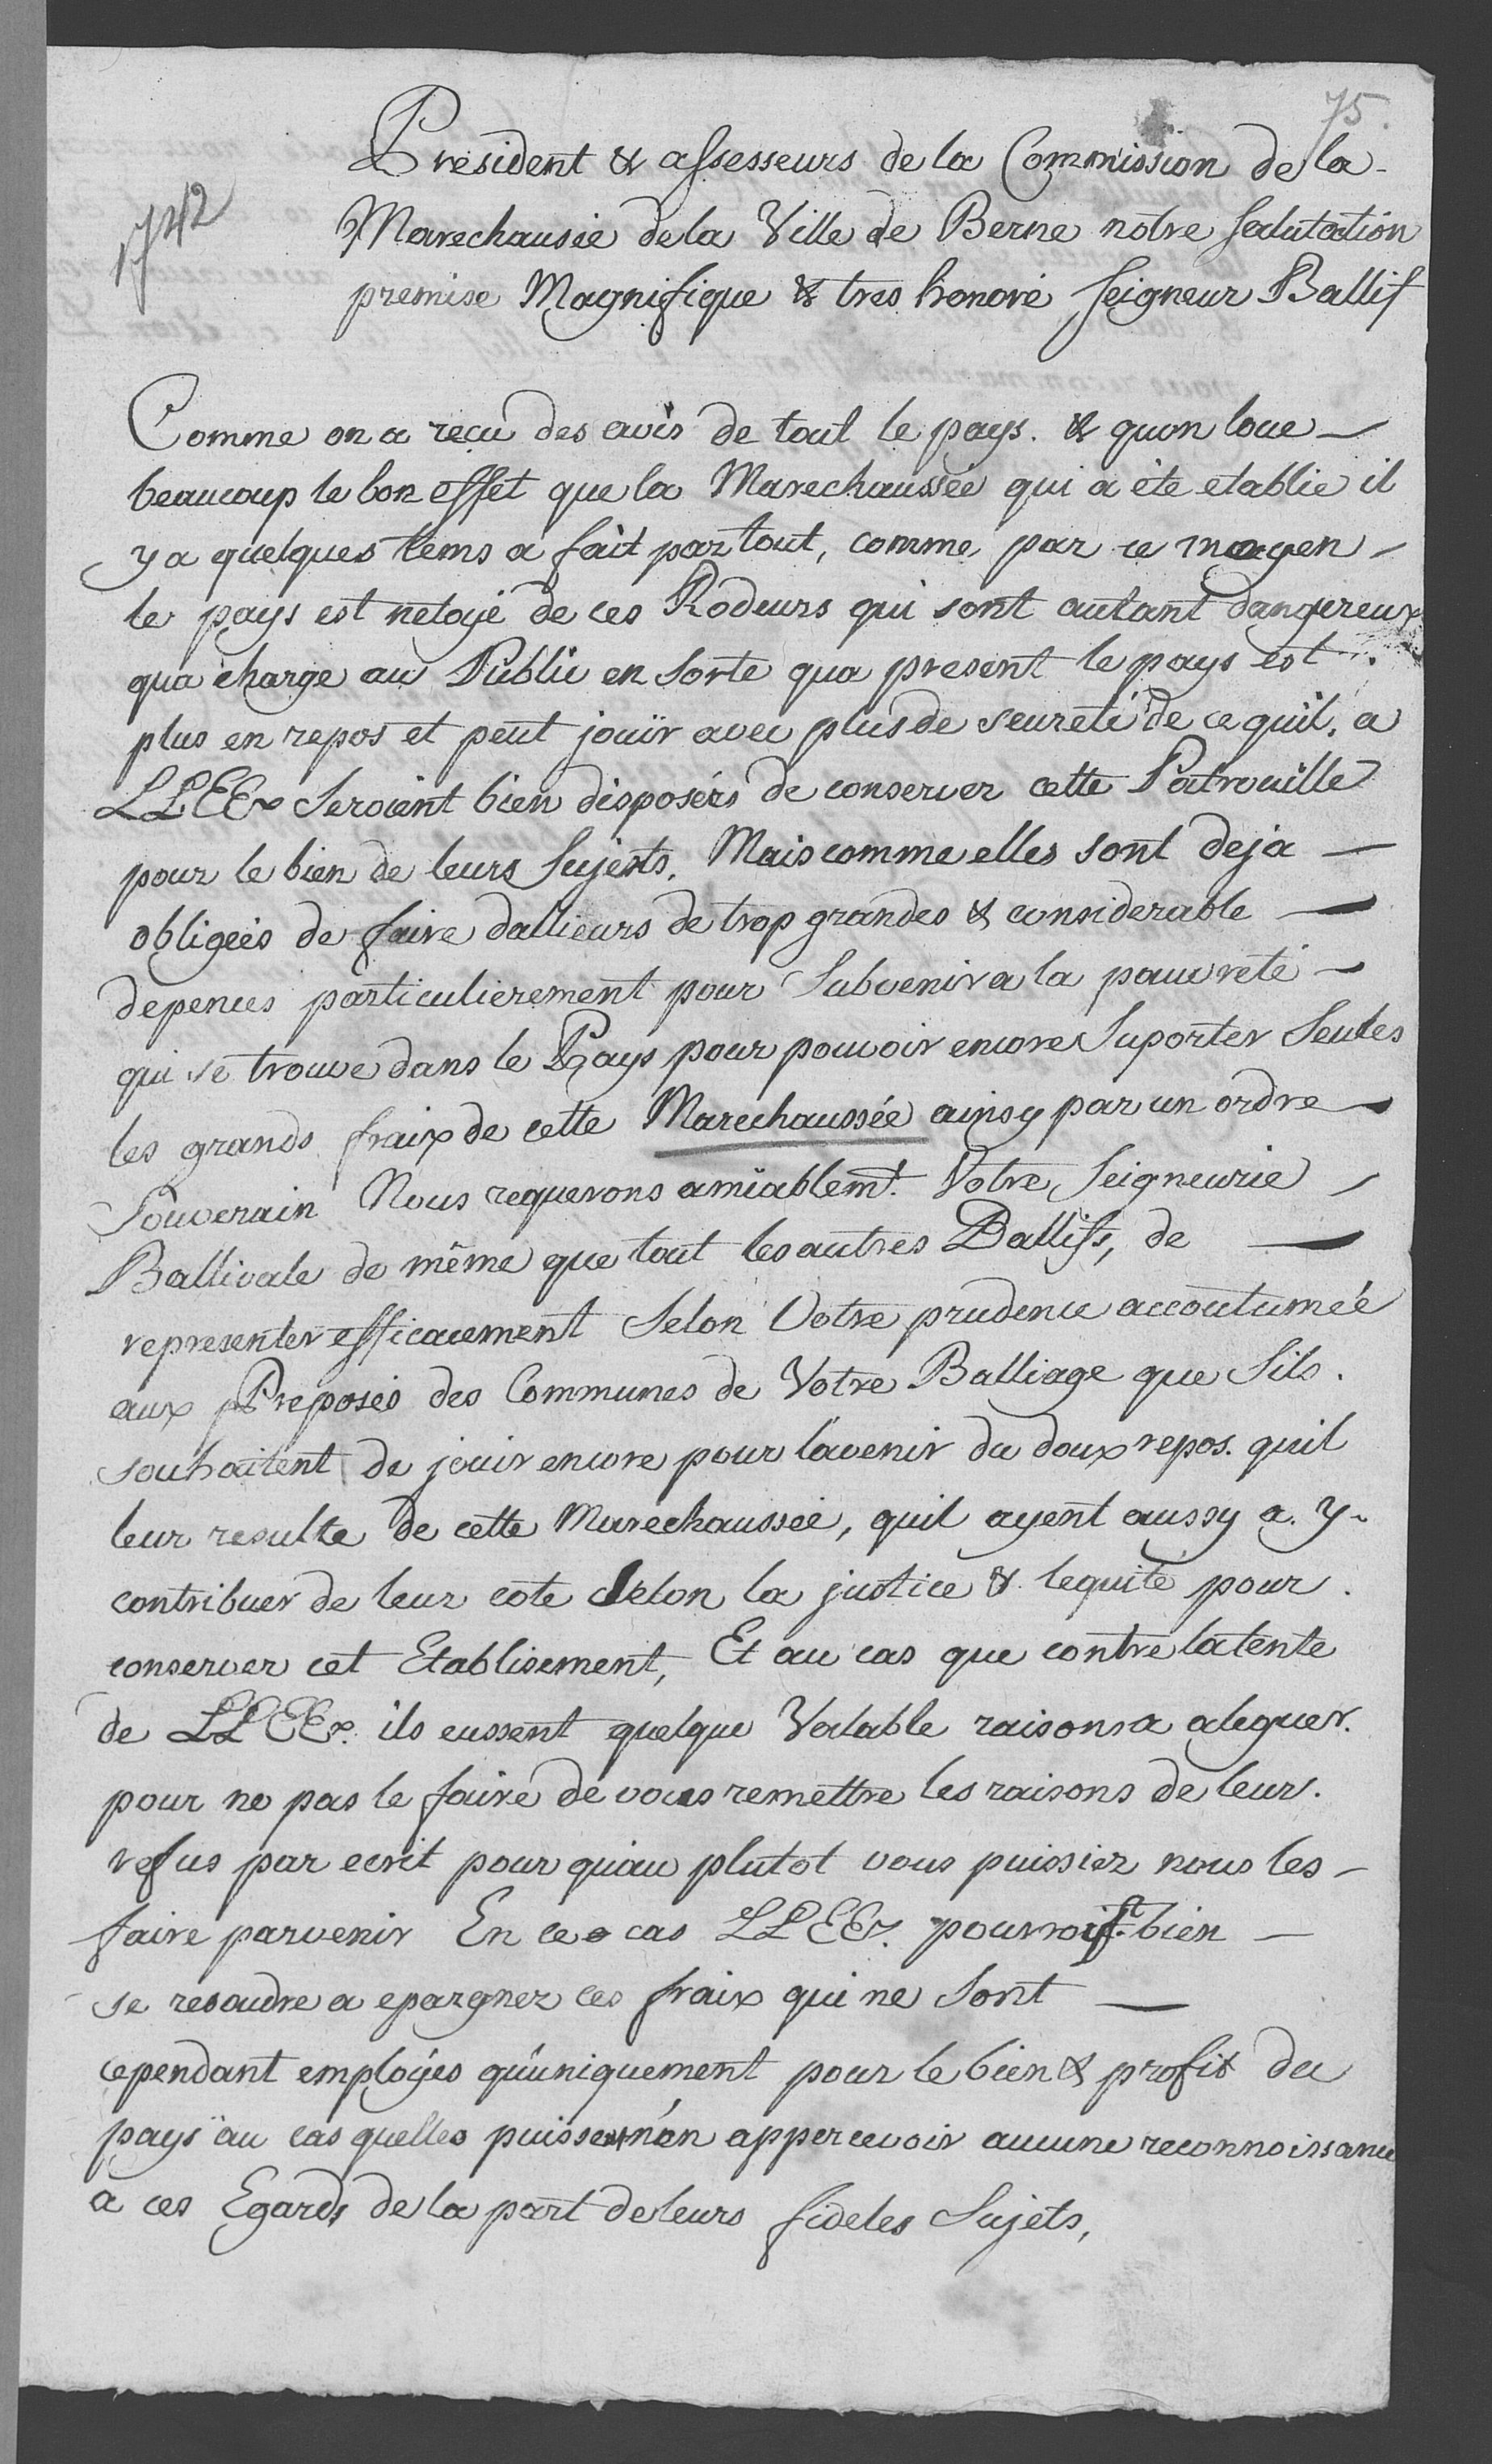 75.
1742
President & assesseurs de la Commission de la
Marechausée de la Ville de Berne notre salutation
premise Magnifique & tres honoré Seigneur Ballif
Comme on a reçu des avis de tout le pays. & quon loue
beaucoup le bon effet que la Marechaussée qui a été etablie il
y a quelques tems a fait partout, comme par ce moyen
le pays est netoyé de ces Rodeurs qui sont autant dangereux
qua charge au Public en sorte qua present le pays est
plus en repos et peut jouïr avec plus de seureté de ce quil, a
LLEEx Seroient bien disposéés de conserver cette Patrouille
pour le bien de leurs Sujets. Mais comme elles sont deja
obligéés de faire dallieurs de trop grandes & considerable
depences particulierement pour Subvenir a la pauvreté
qui se trouve dans le Pays pour pouvoir encore Suporter Seules
les grands fraix de cette Marechaussée ainsy par un ordre
Souverain Nous requerons amiablemt. Votre Seigneurie
Ballivale de même que tout les autres Ballifs, de
representer efficacement Selon Votre prudence accoutumée
aux Preposés des Communes de Votre Balliage que Sils.
souhaitent de jouir encore pour lavenir du doux repos. quil
leur resulte de cette Marechaussée, quil ayent aussy a. y.
contribuer de leur coté Selon la justice & lequité pour.
conserver cet Etablisement, Et au cas que contre latente
de LLEEx. ils eussent quelque Valable raisons a aleguer.
pour ne pas le faire de vous remettre les raisons de leurs.
refus par ecrit pour quau plutot vous puissiez nous les
faire parvenir En ce cas LLEEx. pourroit bien
se resoudre a epargner ces fraix qui ne Sont
cependant employés qu'uniquement pour le bien & profit du
pays au cas quelles puissent n'en appercevoir aucune reconnoissance
a ces Egards de la part de leurs fideles Sujets,